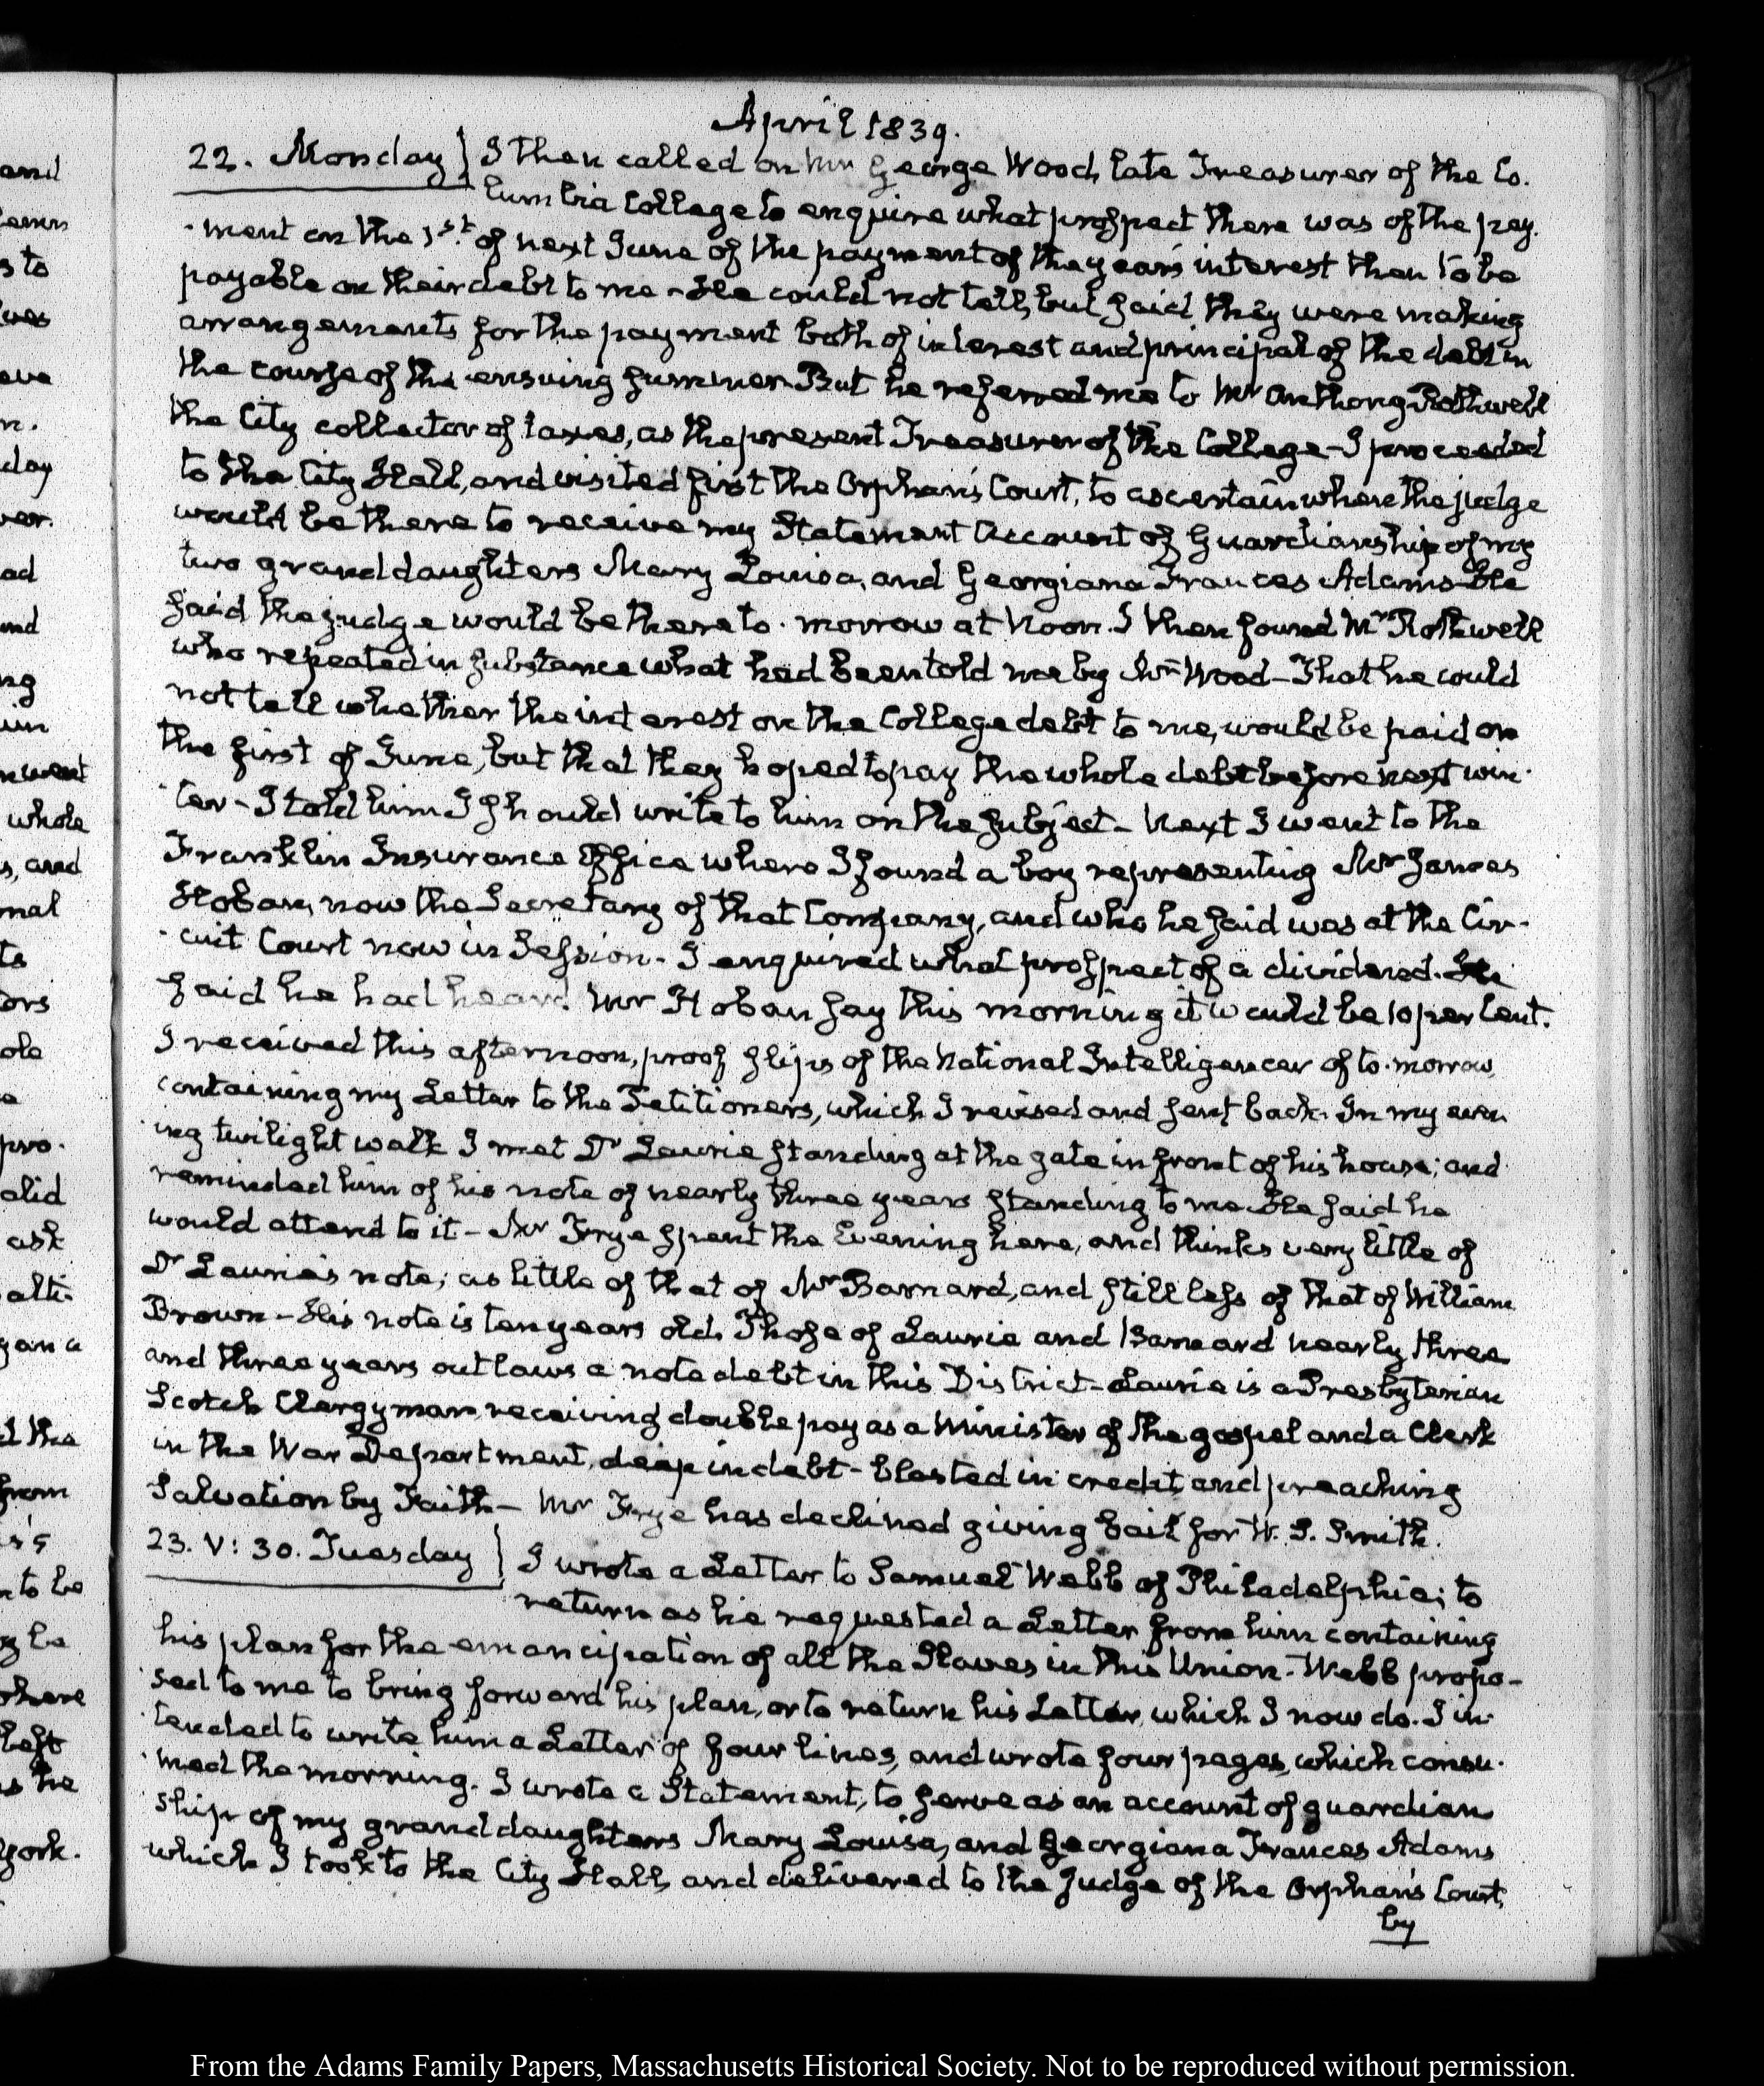 April 1839.
22. Monday} I then called on Mr George Wood, late Treasurer of the Co-
lumbia College to enquire what prospect there was of the pay-
ment on the 1st. of next June of the payment of the year's interest then to be
payable on their debt to me - He could not tell, but said they were making
arrangements for the payment both of interest and principal of the debt in
the course of the ensuing summer. But he referred me to Mr Anthony Rothwell
the City collector of taxes, as the present Treasurer of the College - I proceeded
to the City Hall, and visited first the Orphan's Court, to ascertain when the judge
would be there to receive my Statement Account of Guardianship of my
two grand daughters Mary Louisa, and Georgiana Frances Adams - He
said the judge would be there to-morrow at Noon. I then found Mr Rothwell
who repeated in substance what had been told me by Mr Wood - That he could
not tell whether the interest on the College debt to me, would be paid on
the first of June, but that they hoped to pay the whole debt before next win-
ter - I told him I should write to him on the subject - Next I went to the
Franklin Insurance Office where I found a boy representing Mr James
Hoban, now the Secretary of that Company, and who he said was at the Cir-
cuit Court now in Session - I enquired what prospect of a dividend. He
said he had heard Mr Hoban say this morning it would be 10 per Cent.
I received this afternoon, proof slips of the National Intelligencer of to-morrow,
containing my Letter to the Petitioners, which I revised and sent back. In my even
ing twilight walk I met Dr Laurie standing at the gate in front of his house; and
reminded him of his note of nearly three years standing to me. He said he
would attend to it - Mr Frye spent the Evening here, and thinks very little of
Dr Laurie's note; as little of that of Mr Barnard, and still less of that of William
Brown - His note is ten years old. Those of Laurie and Barnard nearly three
and three years outlaws a note debt in this District - Laurie is a Presbyterian
Scotch Clergyman, receiving double pay as a Minister of the gospel and a Clerk
in the War Department, deep in debt - blasted in credit, and preaching
Salvation by Faith - Mr Frye has declined giving bail for W. S. Smith.
23. V: 30. Tuesday} I wrote a Letter to Samuel Webb of Philadelphia; to
return as he requested a Letter from him containing
his plan for the emancipation of all the Slaves in this Union - Webb propo-
sed to me to bring forward his plan, or to return his Letter, which I now do. I in-
tended to write him a Letter of four lines, and wrote four pages, which consu-
med the morning. I wrote a Statement, to serve as an account of guardian
ship of my grand daughters Mary Louisa, and Georgiana Frances Adams
which I took to the City Hall, and delivered to the Judge of the Orphan's Court,
by
From the Adams Family Papers, Massachusetts Historical Society. Not to be reproduced without permission.